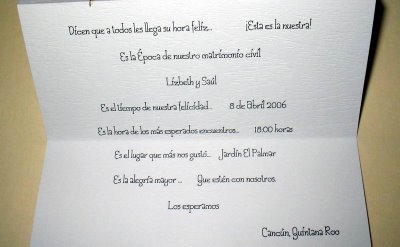 Dicen que a todos les llega su hora feliz... ¡Esta es la nuestra!
Es la Época de nuestro matrimonio civil
Lizbeth y Saúl
Es el tiempo de nuestra felicidad... 8 de Abril 2006
Es la hora de los más esperados encuentros... 18:00 horas
Es el lugar que más nos gustó... Jardín El Palmar
Es la alegría mayor... Que estén con nosotros.
Los esperamos
Cancún, Quintana Roo